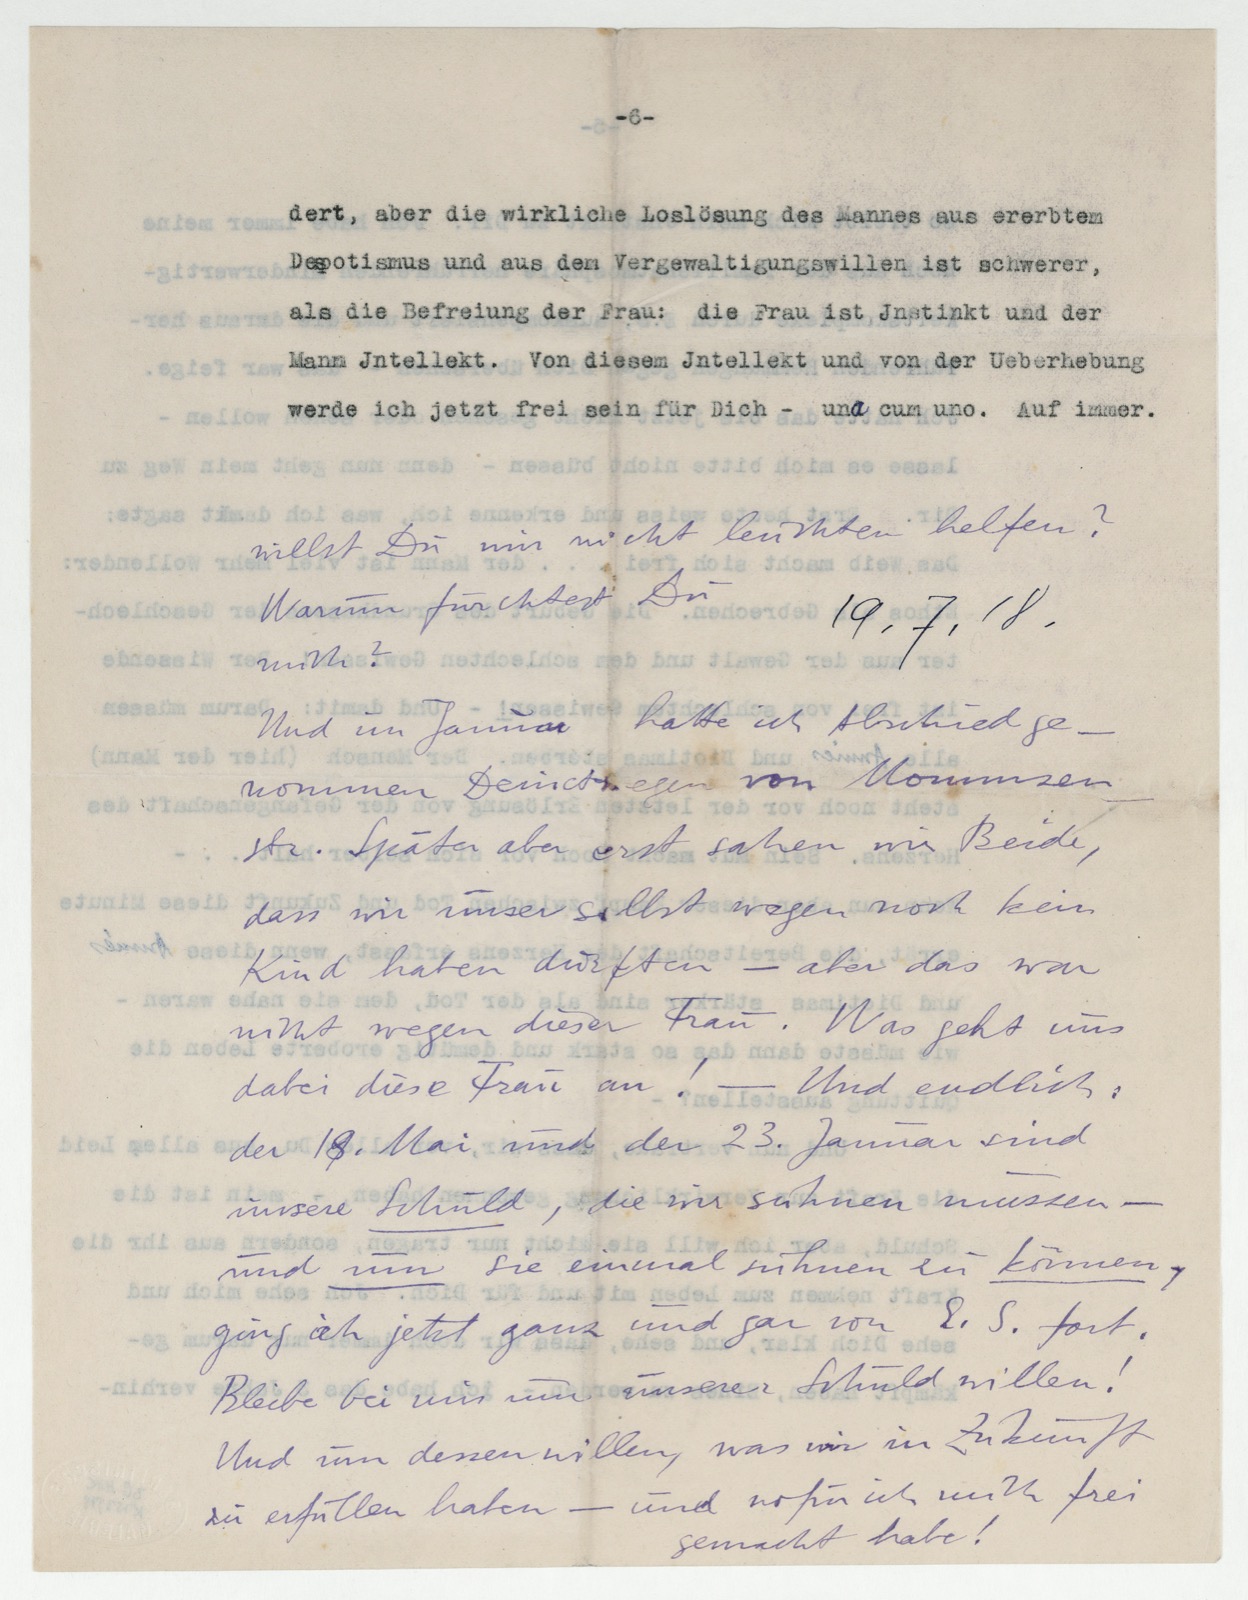 -6-
dert, aber die wirkliche Loslösung des Mannes aus ererbtem
Despotismus und aus dem Vergewaltigungswillen ist schwerer,
als die Befreiung der Frau: die Frau ist Jnstinkt und der
Mann Jntellekt. Von diesem Jntellekt und von der Ueberhebung
werde ich jetzt frei sein für Dich - una cum uno. Auf immer.
willst Du mir nicht leuchten helfen?
Warum fürchtest Du
19.7.18.
mich?
Und im Januar hatte ich Abschied ge-
nommen Deinetwegen von Mommsen
str. Später aber erst sahen wir Beide,
dass wir unser selbst wegen noch kein
Kind haben durften – aber das war
nicht wegen dieser Frau. Was geht uns
dabei diese Frau an! – Und endlich:
der 18. Mai und der 23. Januar sind
unsere Schuld, die wir sühnen müssen –
und um sie einmal sühnen zu können,
ging ich jetzt ganz und gar von E. S. fort.
Bleibe bei mir um unserer Schuld willen!
Und um dessen willen, was wir in Zukunft
zu erfüllen haben – und wofür ich mich frei
gemacht habe!